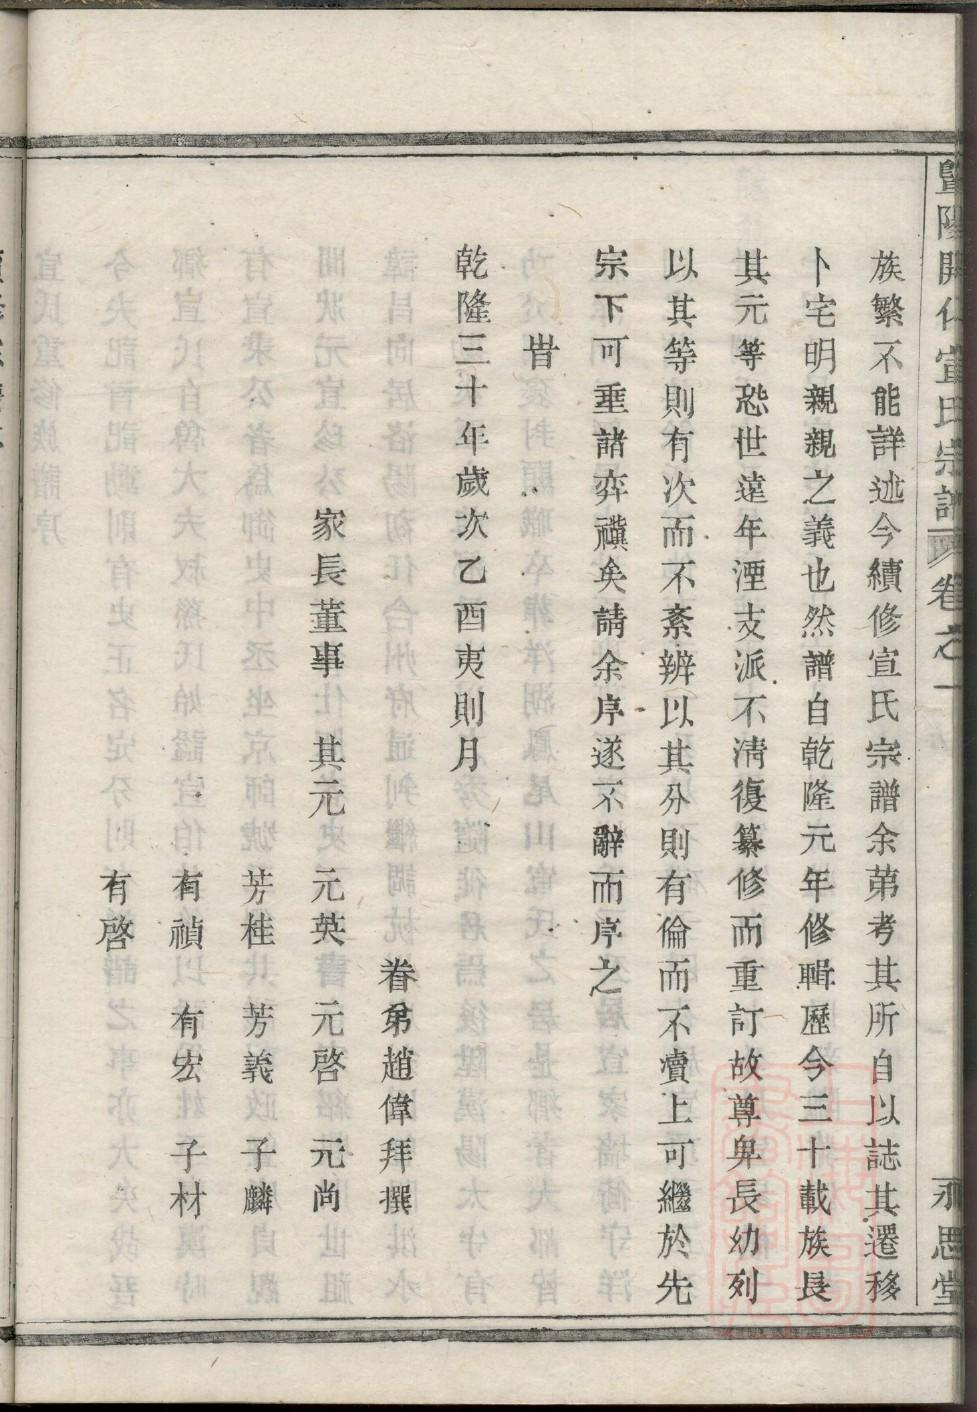 暨陽開化宣氏宗譜 卷之一 永思堂
族繁不能詳述今續修宣氏宗譜余苐考其所自以誌其遷移
卜宅明親親之義也然譜自乾隆元年修輯歷今三十載族長
其元等恐世遠年湮支派不清復纂修而重訂故尊卑長幼列
以其等則有次而不紊辨以其分則有倫而不瀆上可繼於先
宗下可垂諸弈禩矣請余序遂不辭而序之
旹
乾隆三十年歲次乙酉夷則月
眷弟趙偉拜撰
家長董事 其元 元英 元啓 元尚
芳桂 芳義 子麟
有禎 有宏 子材
有啓